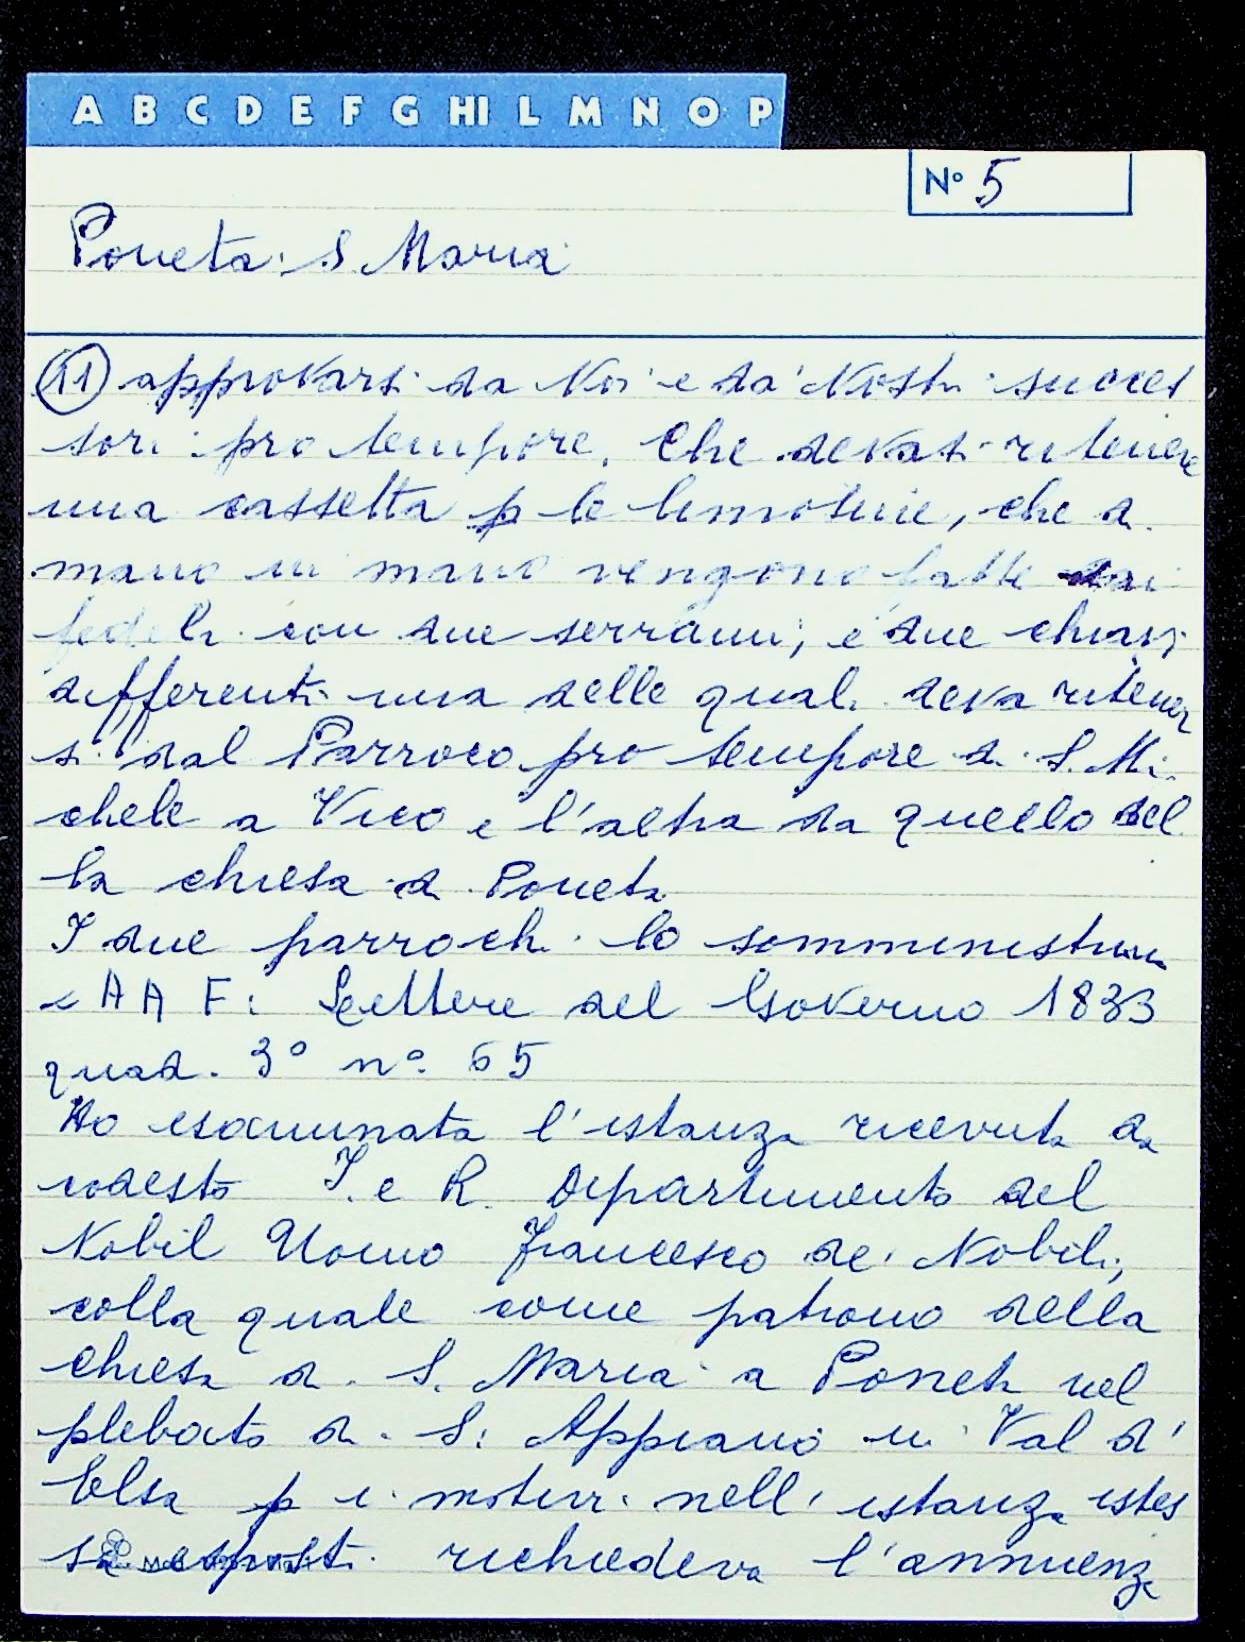 A B C D E F G HI L M N O P
N° 5
Poneta. S. Maria
(11) approvarsi da Noi e da' Nostri succes
sori pro tempore. Che devasi ritenere
una cassetta p le limosine, che di
mano in mano vengono fatte dai
fedeli con due serrami, e due chiavi
differenti una delle quali deva ritener
si dal Parroco pro tempore di S. Mi
chele a Vico e l'altra da quello del
la chiesa di Poneta
I due parrochi lo somministrano
A A F: Lettere del Governo 1833
quad. 3° n° 65
Ho esaminata l'istanza ricevuta da
codesto I. e R. Dipartimento del
Nobil Uomo Francesco de' Nobili,
colla quale come patrono della
chiesa di S. Maria a Poneta nel
plebato di S. Appiano in Val d'
Elsa p i motivi nell'istanza istes
sa esposti richiedeva l'annuenza